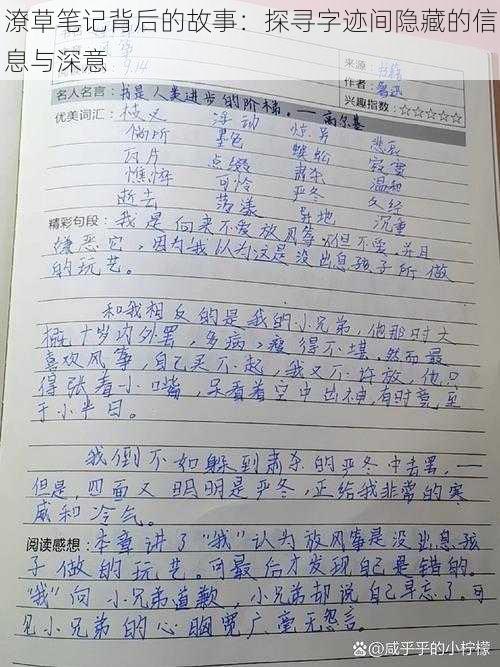 潦草笔记背后的故事：探寻字迹间隐藏的信
息与深意
9.14
来源：书籍
作者：鲁迅
名人名言：书是人类进步的阶梯。——高尔基
兴趣指数：☆☆☆☆☆
优美词汇：枝叉 浮动 惊异 悲哀
倘所 墨色 蜈蚣 寂寞
瓦片 点缀 肃杀 温和
憔悴 可怜 严冬 久经
逝去 荡漾 异地 沉重
精彩句段：我是向来不爱放风筝，但不爱，并且
嫌恶它，因为我认为这是没出息孩子所做
的玩艺。
和我相反的是我的小兄弟，他那时大
概十岁内外罢，多病，瘦得不堪，然而最
喜欢风筝，自己买不起，我又不许放，他只
得张着小嘴，呆看着空中出神，有时竟至
于小半日。
我倒不如躲到肃杀的严冬中去罢，——
但是，四面又明明是严冬，正给我非常的寒
威和冷气。
阅读感想：本章讲了“我”认为放风筝是没出息孩
子做的玩艺。可最后才发现自己是错的。
“我”向小兄弟道歉，小兄弟却说自己早忘了。可
见小兄弟的心胸宽广毫无怨言
@咸乎乎的小柠檬